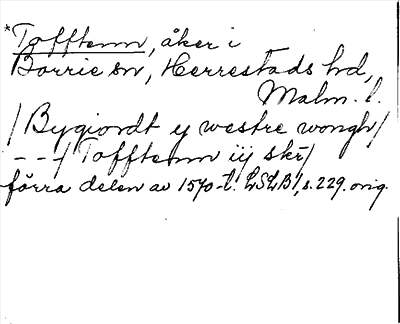 *Tofftenn, åker i
Borrie sn, Herrestads hd,
Malm. l.
/Bygiordt y westre wongh/
- - -/Tofftenn iij skr/
förra delen av 1570-t. LSLB1, s. 229. orig.